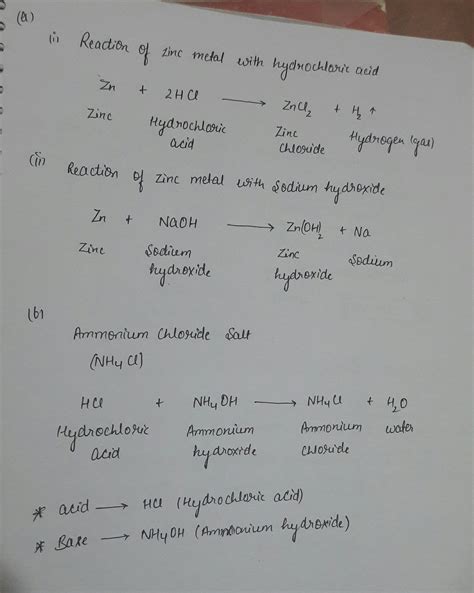 (a)
(i) Reaction of zinc metal with hydrochloric acid
Zn + 2HCl ⟶ ZnCl₂ + H₂ ↑
Zinc Hydrochloric acid Zinc chloride Hydrogen (gas)
(ii) Reaction of zinc metal with sodium hydroxide
Zn + NaOH ⟶ Zn(OH)₂ + Na
Zinc Sodium hydroxide Zinc hydroxide Sodium
(b)
Ammonium Chloride Salt
(NH₄Cl)
HCl + NH₄OH ⟶ NH₄Cl + H₂O
Hydrochloric acid Ammonium hydroxide Ammonium chloride water
* acid ⟶ HCl (Hydrochloric acid)
* Base ⟶ NH₄OH (Ammonium hydroxide)